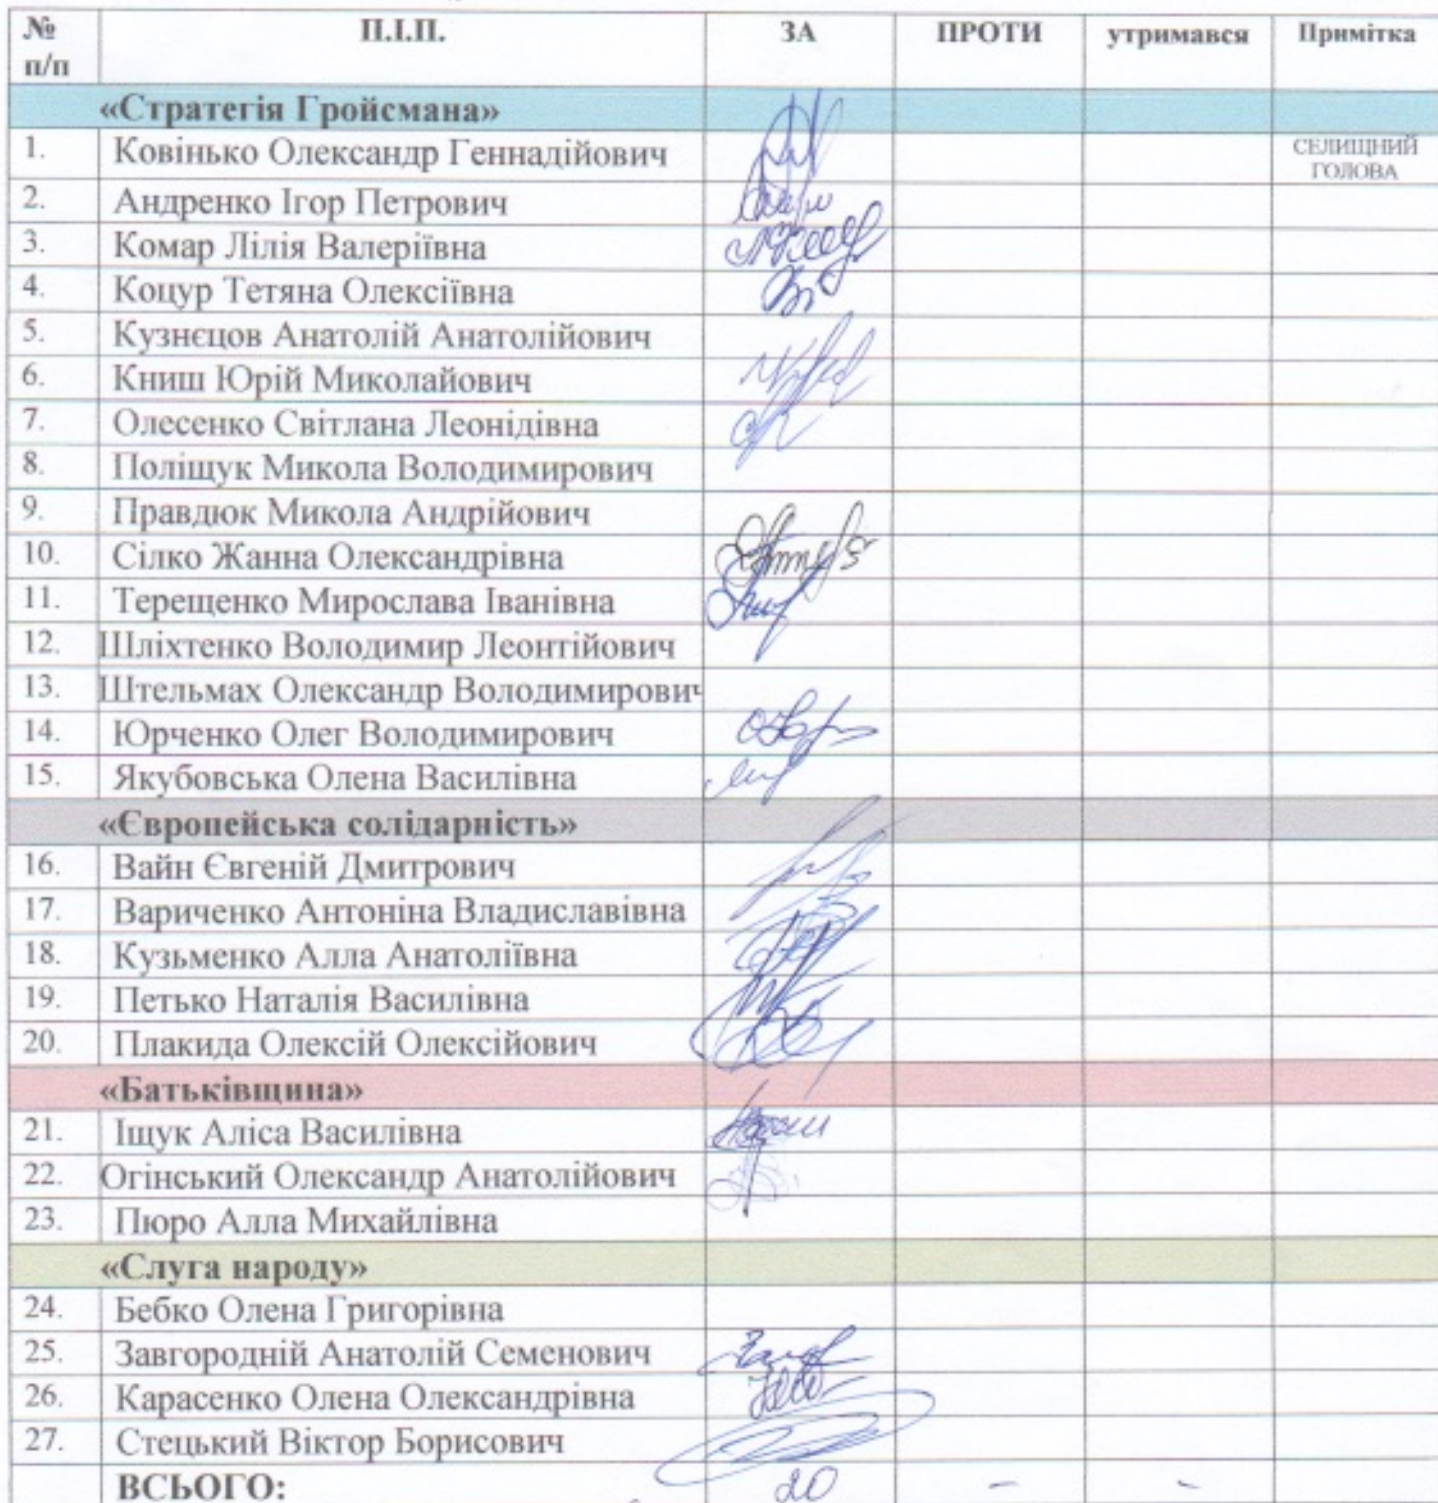 № П.І.П. ЗА ПРОТИ утримався Примітка
п/п
«Стратегія Гройсмана»
1. Ковінько Олександр Геннадійович СЕЛИЩНИЙ
ГОЛОВА
2. Андренко Ігор Петрович
3. Комар Лілія Валеріївна
4. Коцур Тетяна Олексіївна
5. Кузнєцов Анатолій Анатолійович
6. Книш Юрій Миколайович
7. Олесенко Світлана Леонідівна
8. Поліщук Микола Володимирович
9. Правдюк Микола Андрійович
10. Сілко Жанна Олександрівна
11. Терещенко Мирослава Іванівна
12. Шліхтенко Володимир Леонтійович
13. Штельмах Олександр Володимирович
14. Юрченко Олег Володимирович
15. Якубовська Олена Василівна
«Європейська солідарність»
16. Вайн Євгеній Дмитрович
17. Вариченко Антоніна Владиславівна
18. Кузьменко Алла Анатоліївна
19. Петько Наталія Василівна
20. Плакида Олексій Олексійович
«Батьківщина»
21. Іщук Аліса Василівна
22. Огінський Олександр Анатолійович
23. Пюро Алла Михайлівна
«Слуга народу»
24. Бебко Олена Григорівна
25. Завгородній Анатолій Семенович
26. Карасенко Олена Олександрівна
27. Стецький Віктор Борисович
ВСЬОГО: 20 - -